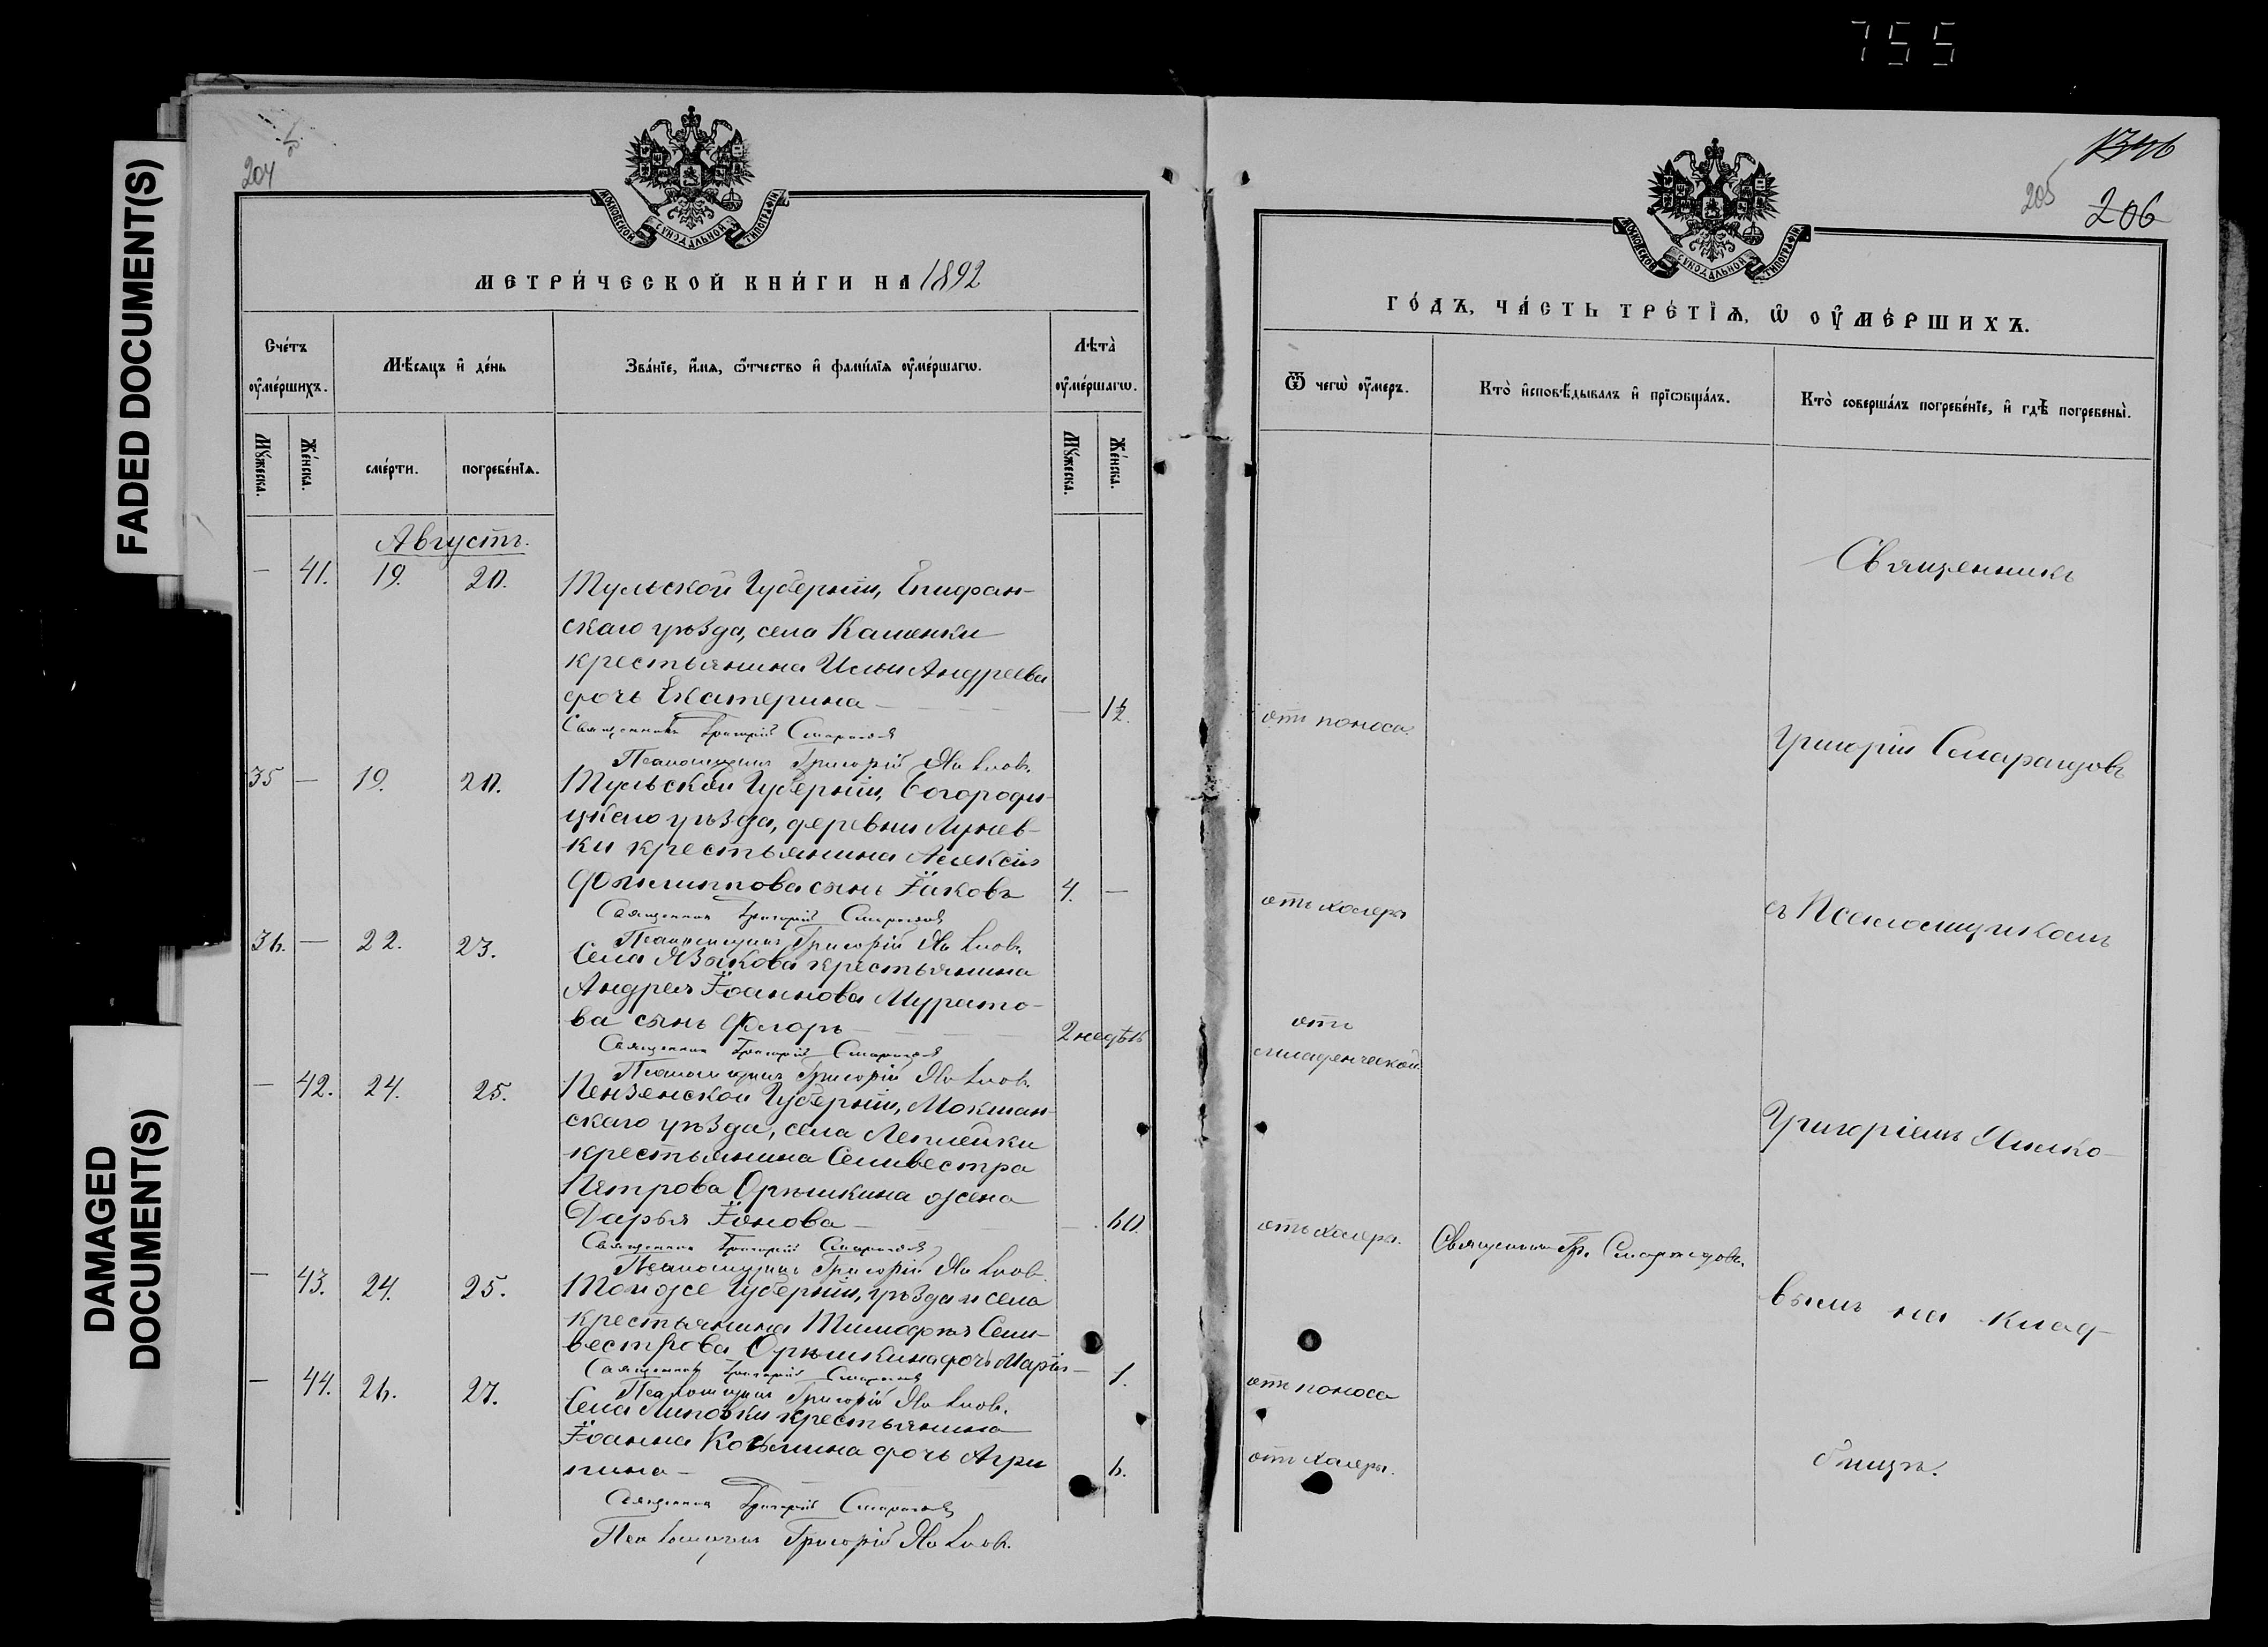 755
FADED DOCUMENT(S)
DAMAGED
DOCUMENT(S)
204
МОСКОВСКОЙ СѴНОДАЛЬНОЙ ТИПОГРАФІИ
МЕТРИ́ЧЕСКОЙ КНИ́ГИ НА 1892
Сче́тъ
ᲂу҆ме́ршихъ.
Мѣ́сѧцъ и҆ де́нь
Зва́нїе, и҆́мѧ, ѻ҆́тчество и҆ фамі́лїѧ ᲂу҆ме́ршагѡ.
Лѣ́та̀
ᲂу҆ме́ршагѡ.
Мꙋ́жеска.
Же́нска.
сме́рти.
погребе́нїѧ.
Мꙋ́жеска.
Же́нска.
Августъ.
— 41. 19. 20. Тульской Губерніи, Епифан-
скаго уѣзда, села Каменки
крестьянина Ильи Андреева
дочь Екатерина — — 1½.
Священникъ Григорій Смарагдовъ
Псаломщикъ Григорій
35 — 19. 20. Тульской Губерніи, Богороди-
цкаго уѣзда, деревни Лунев-
ки крестьянина Алексія
Филиппова сынъ Іаковъ 4. —
Священникъ Григорій Смарагдовъ
Псаломщикъ Григорій
36. — 22. 23. Села Языкова крестьянина
Андрея Іоаннова Мурато-
ва сынъ Флоръ — 2 недѣль
Священникъ Григорій Смарагдовъ
Псаломщикъ Григорій
— 42. 24. 25. Пензенской Губерніи, Мокшан-
скаго уѣзда, села
крестьянина Сильвестра
Петрова Орѣшкина жена
Дарья Іонова — — 60.
Священникъ Григорій Смарагдовъ
Псаломщикъ Григорій
— 43. 24. 25. Той же Губерніи, уѣзда и села
крестьянина Тимофея Силь-
вестрова Орѣшкина дочь Марія — 1.
Священникъ Григорій Смарагдовъ
Псаломщикъ Григорій
— 44. 26. 27. Села Липовки крестьянина
Іоанна Косьмина дочь Агри
пина — 6.
Священникъ Григорій Смарагдовъ
Псаломщикъ Григорій
1346
205
206
МОСКОВСКОЙ СѴНОДАЛЬНОЙ ТИПОГРАФІИ
ГО́ДЪ, ЧА́СТЬ ТРЕ́ТІѦ, Ѡ҆ ОУ҆МЕ́РШИХЪ.
Ѿ чегѡ̀ ᲂу҆́меръ.
Кто̀ и҆сповѣ́дывалъ и҆ прїѡбща́лъ.
Кто̀ соверша́лъ погребе́нїе, и҆ гдѣ̀ погребены̀.
Священникъ
отъ поноса
Григорій Смарагдовъ
отъ холеры
съ Псаломщикомъ
отъ
младенческой
Григоріемъ
отъ холеры. Священникъ Гр. Смарагдовъ.
вымъ на клад-
отъ поноса
отъ холеры.
бищѣ.